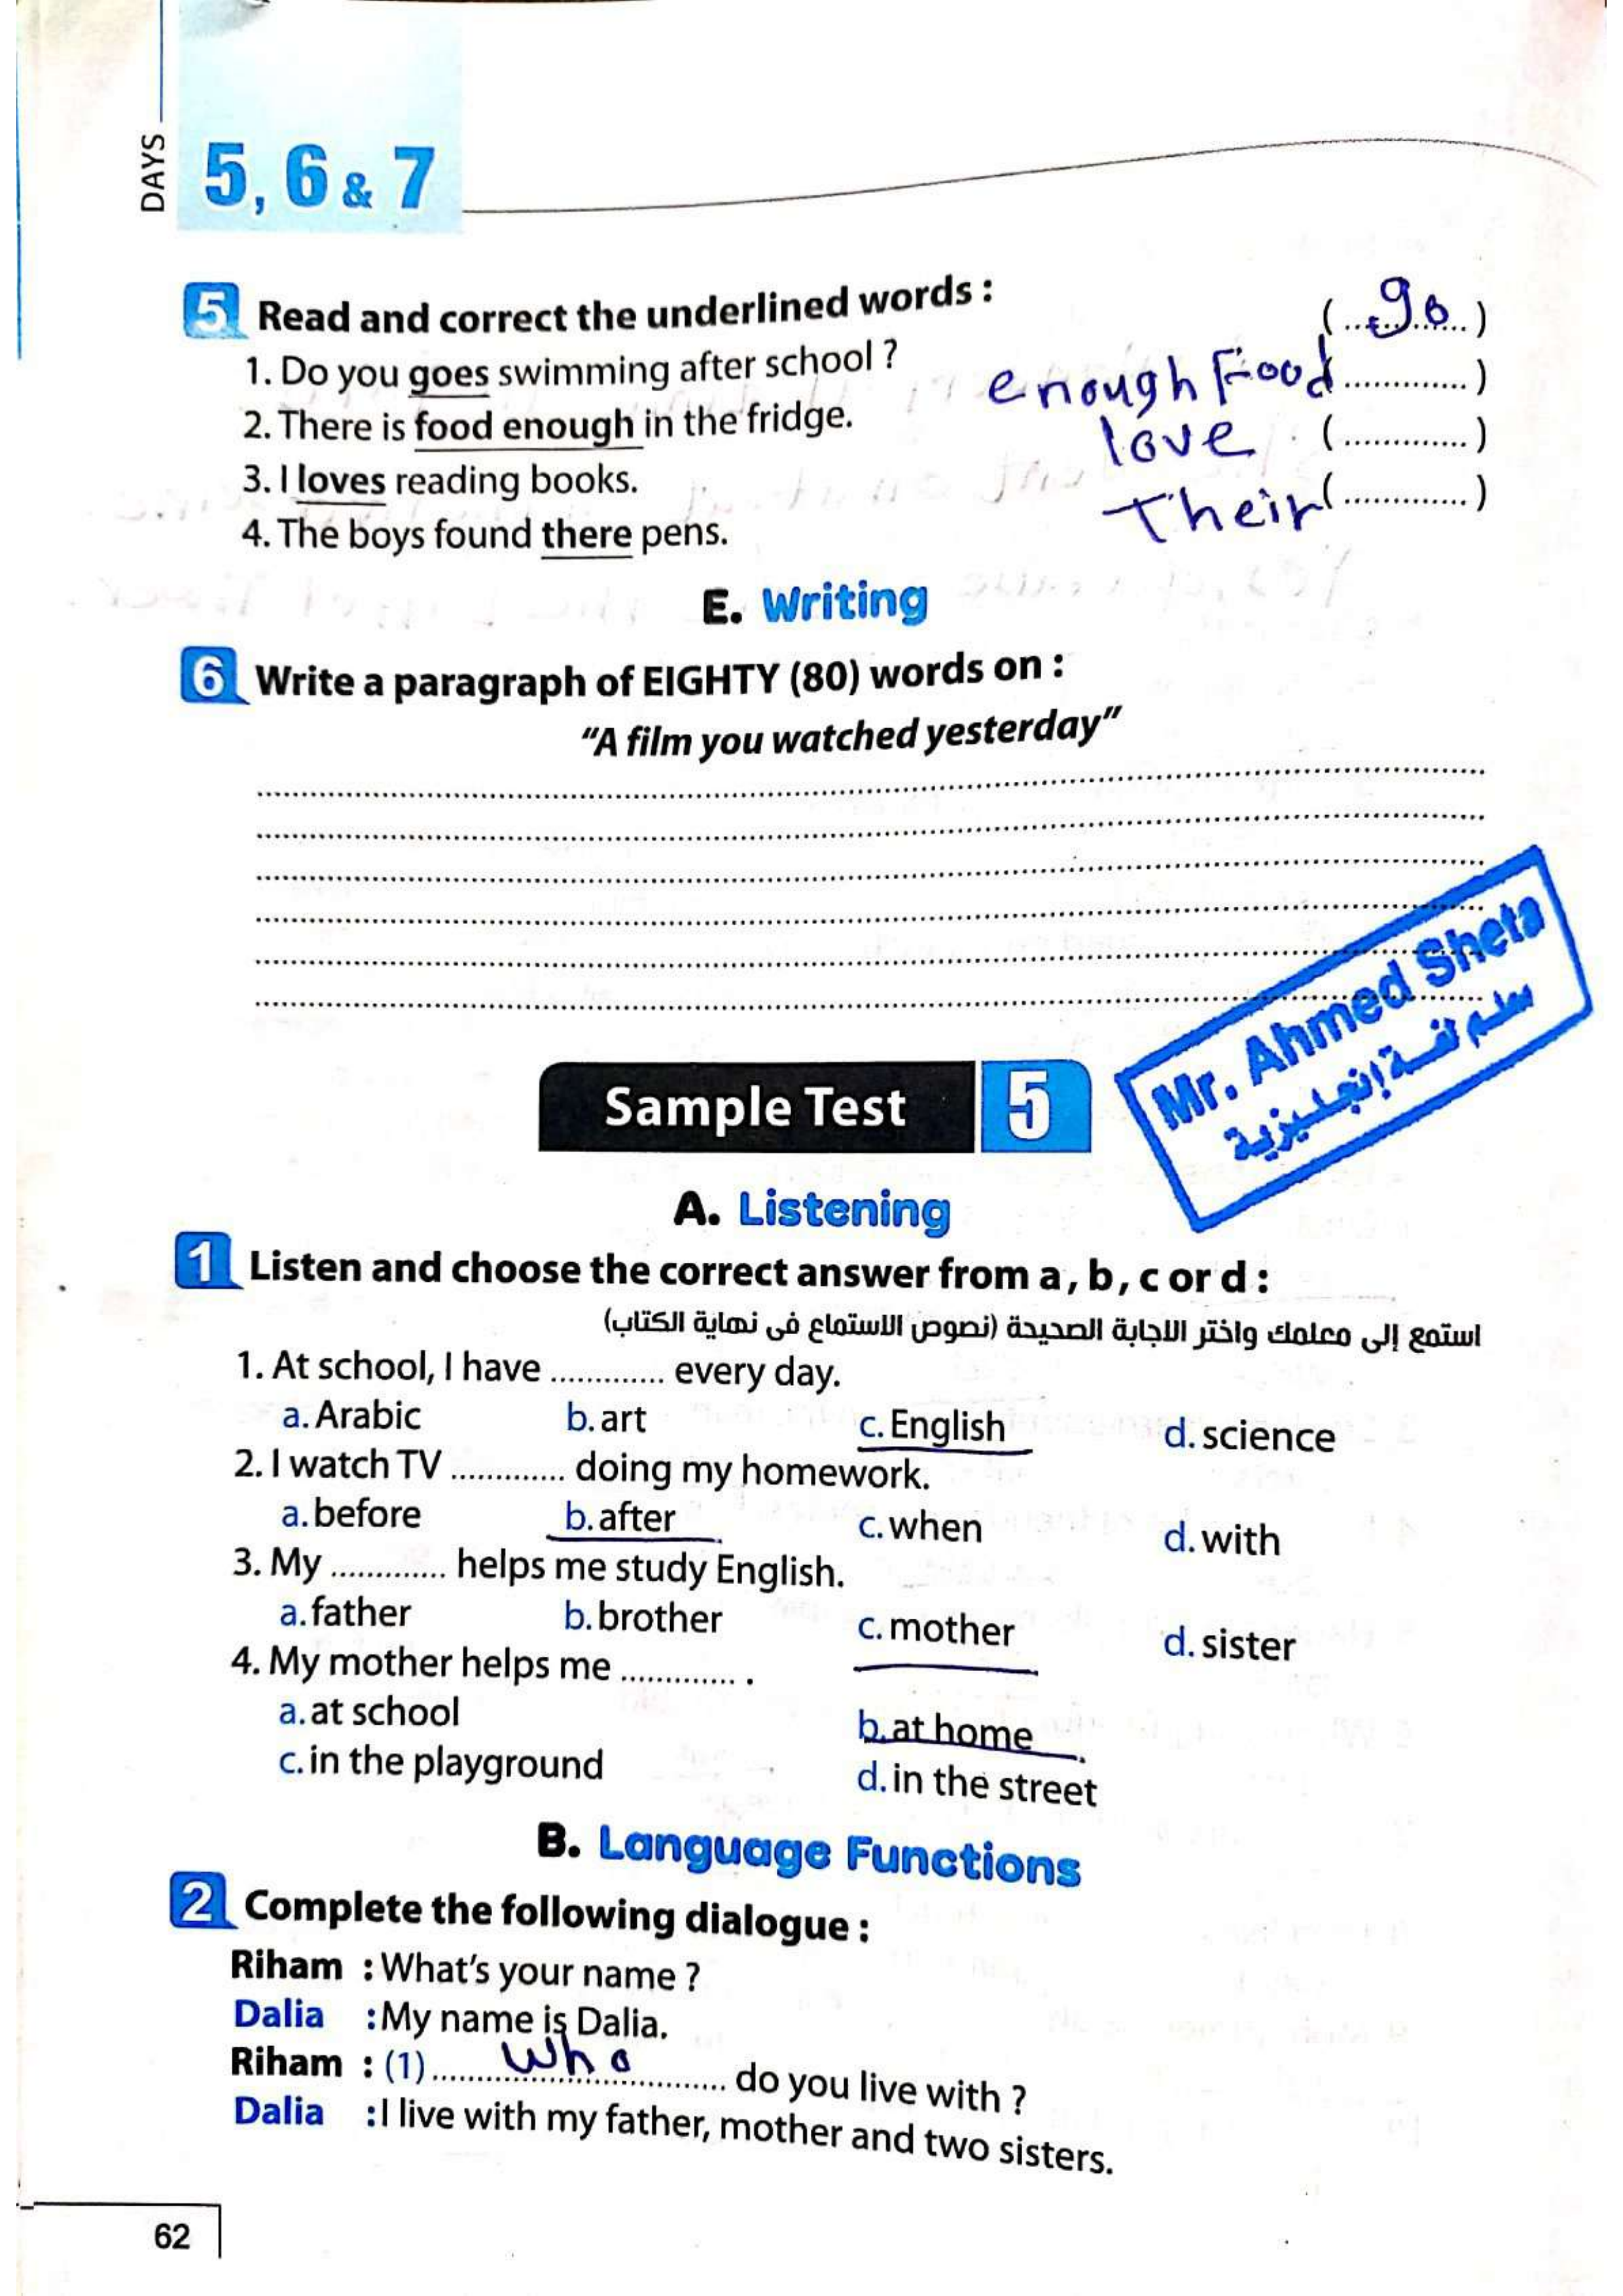 DAYS
5, 6 & 7
5 Read and correct the underlined words :
1. Do you goes swimming after school ? (....go....)
2. There is food enough in the fridge. enough Food.............)
3. I loves reading books. love (.............)
4. The boys found there pens. Their(.............)
E. Writing
6 Write a paragraph of EIGHTY (80) words on :
"A film you watched yesterday"
Mr. Ahmed Sheta
إنجليزية
Sample Test 5
A. Listening
1 Listen and choose the correct answer from a, b, c or d :
استمع إلى معلمك واختر الاجابة الصحيحة (نصوص الاستماع فى نهاية الكتاب)
1. At school, I have ............. every day.
a. Arabic b. art c. English d. science
2. I watch TV ............. doing my homework.
a. before b. after c. when d. with
3. My ............. helps me study English.
a. father b. brother c. mother d. sister
4. My mother helps me ............. .
a. at school b. at home
c. in the playground d. in the street
B. Language Functions
2 Complete the following dialogue :
Riham : What's your name ?
Dalia : My name is Dalia.
Riham : (1) ....... Who ............. do you live with ?
Dalia : I live with my father, mother and two sisters.
62